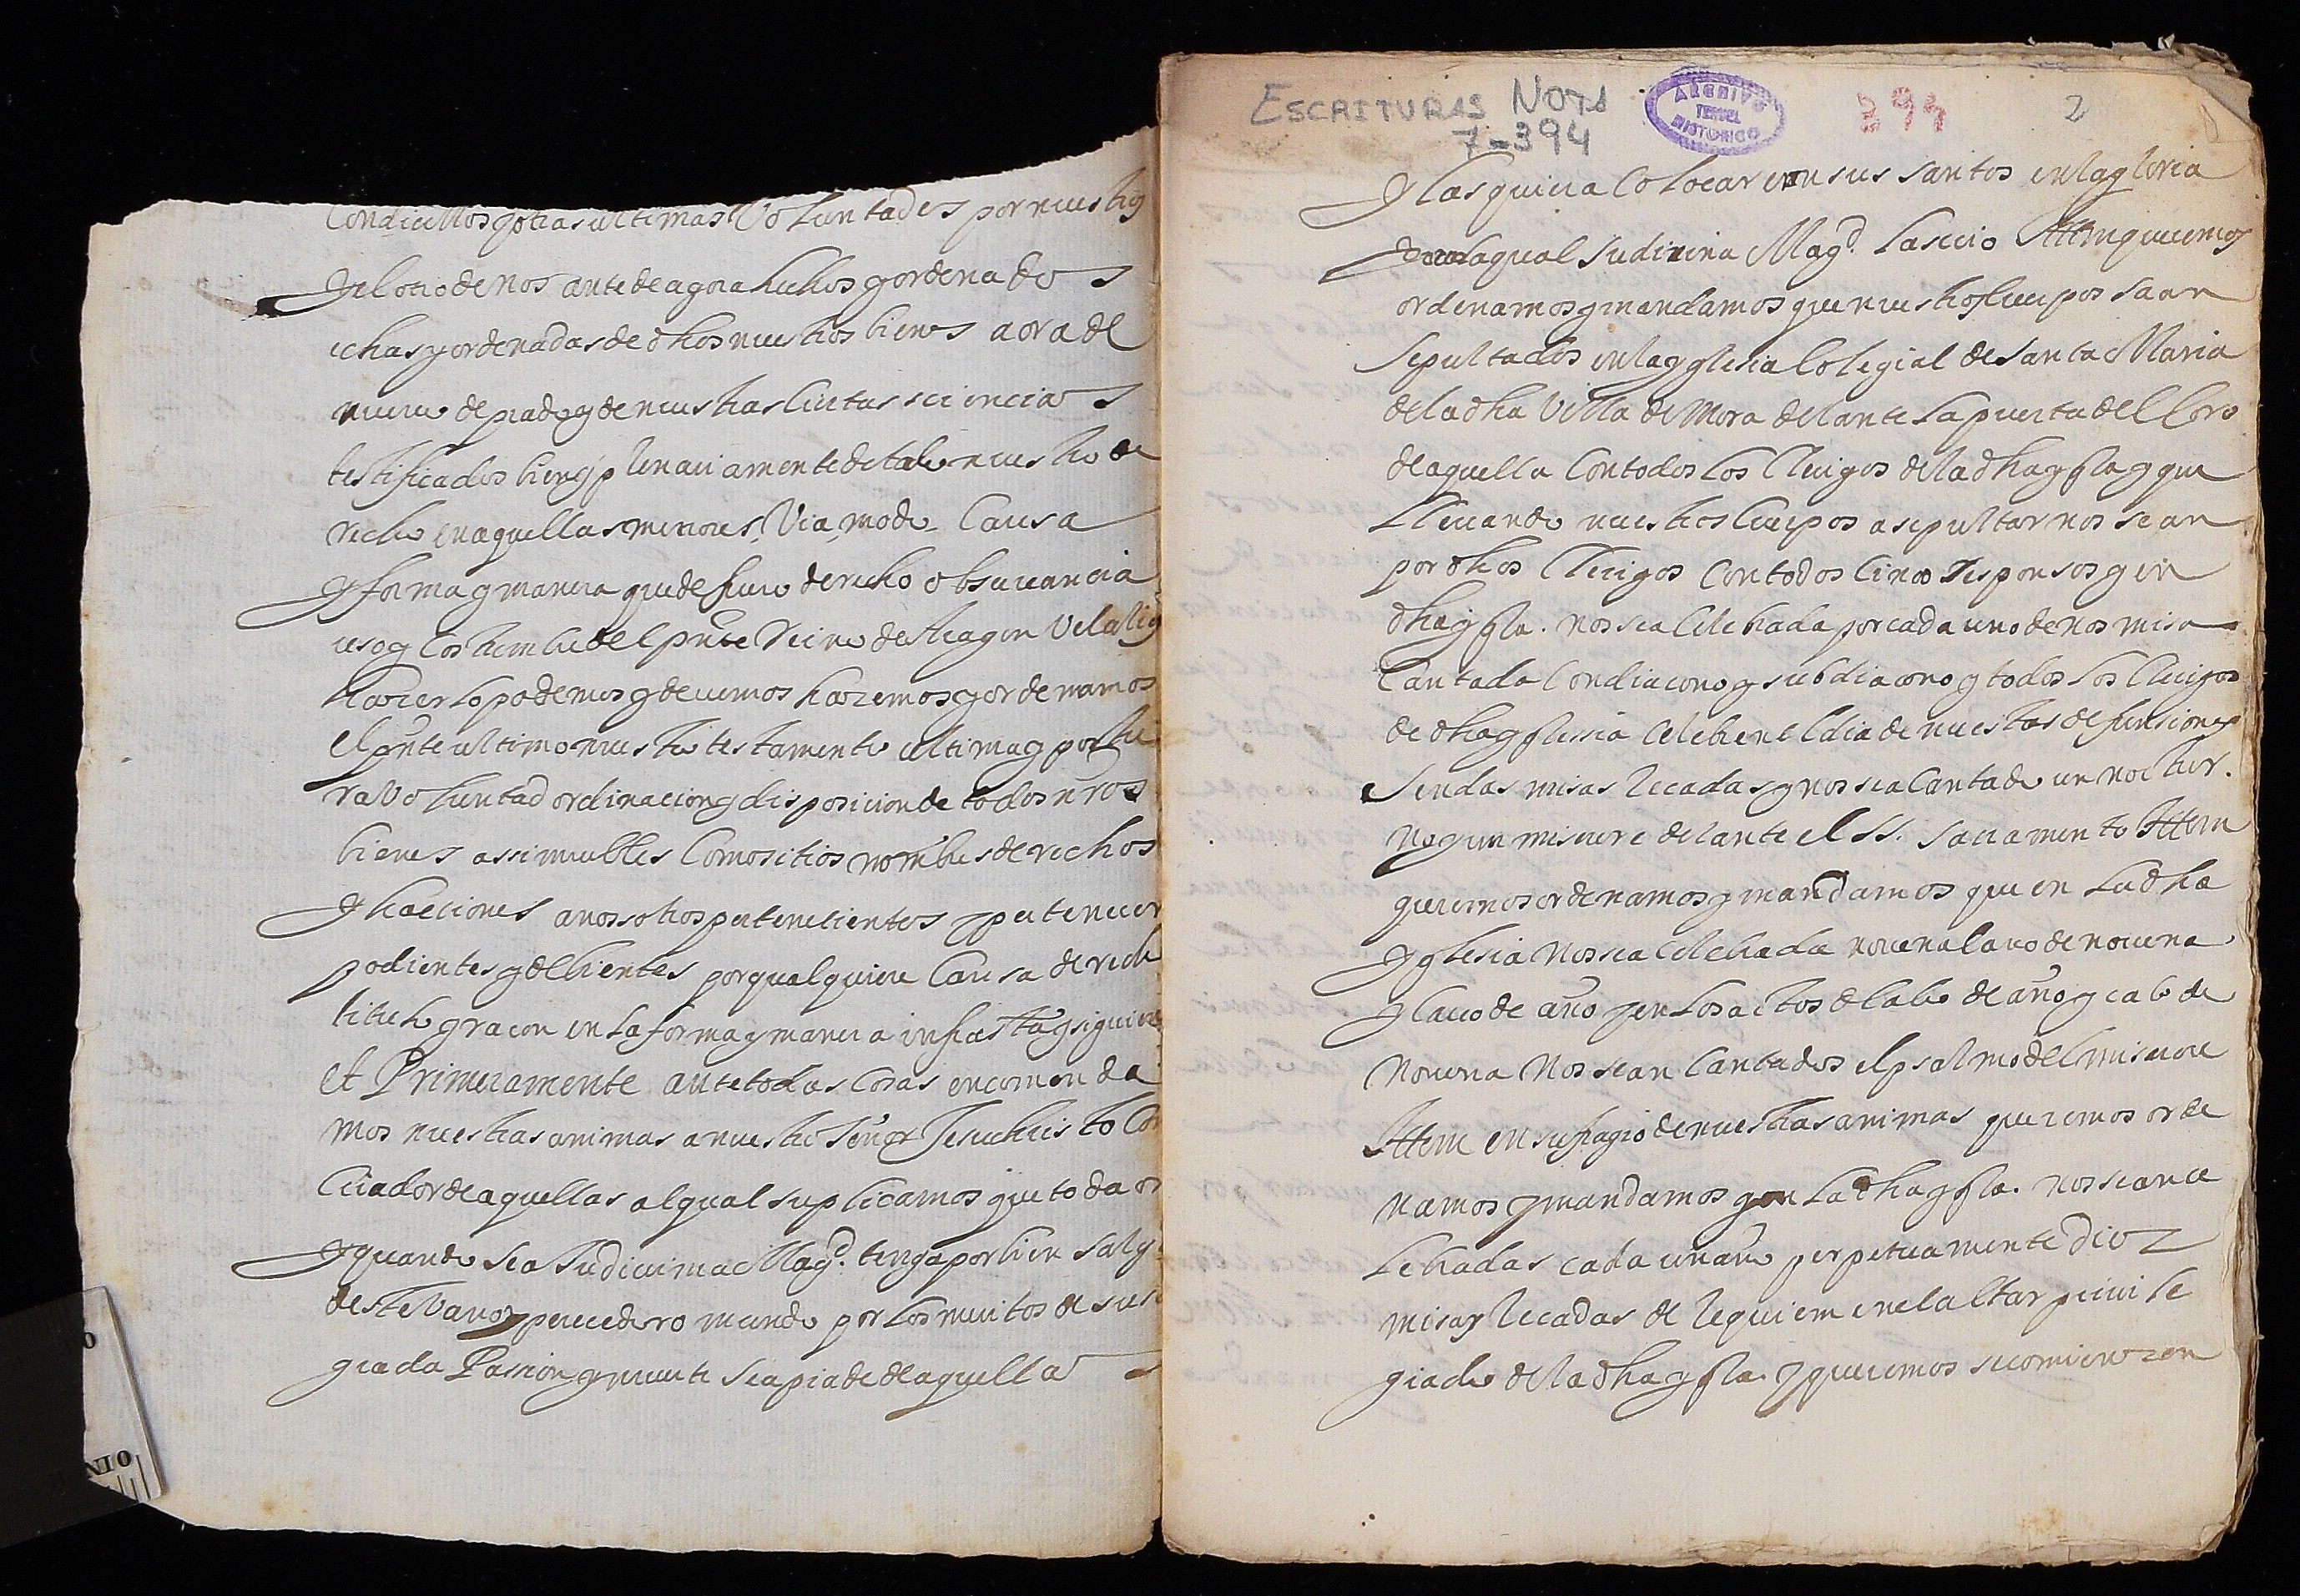 Condicillos y otras ultimas Voluntades por nuestros
Y el otro de nos ante de agora hechos y ordenados
echas y ordenadas de dhos nuestros bienes aora de
nuevo de grado y de nuestras ciertas sciencias
testificados bien y plenariamente de todo nuestro de
recho en aquellas mejores, Via, modo, Causa
Y forma y manera que de fuero derecho observancia
uso y costumbre del pnte Reino de Aragon
hazer lo podemos y devemos hazemos y ordenamos
el pnte ultimo nuestro testamento ultima y postre
ra Voluntad ordinacion y disposicion de todos nros
bienes assi muebles como sitios nombres derechos
Y hacciones a nossotros pertenecientes y pertenecer
podientes y debientes por qualquiere Causa derecho
titulo y racon en la forma y manera infrasta y siguiente
et Primeramente ante todas Cosas encomenda
mos nuestras animas a nuestro Señor Jesuchristo
Criador de aquellas al qual suplicamos que toda ora
Y quando sea Su divina Magd. tenga por bien salgan
deste Vano y perecedero mundo por los meritos de su sa
grada Passion y muerte se apiade de aquellas
ESCRITURAS NOTS
7-394
ARCHIVO
TERUEL
HISTORICO
394
2
Y las quiera Colocar con sus santos en la gloria
para la qual Su divina Magd. las crio Attem queremos
ordenamos y mandamos que nuestros cuerpos sean
Sepultados en la Yglesia Colegial de Santa Maria
de la dha Villa de Mora delante la puerta del Coro
de aquella Con todos los Clerigos de la dha ygla y que
Llevando nuestros cuerpos a sepultar nos sean
por dhos Clerigos Contados cinco Responsos y en
dha ygla. nos sea Celebrada por cada uno de nos misa
Cantada Con diacono y subdiacono y todos los Clerigos
de dha yglesia Celebren el dia de nuestras defunsiones
Sendas misas recadas y nos sea Cantado un noctur.
no y un miserere delante el SS. Sacramento Attem
queremos ordenamos y mandamos que en la dha
Yglesia nos sea Celebrada novena Cavo de novena
Y Cavo de año y en los actos de Cabo de año y cabo de
Novena Nos sean Cantados el psalmo del miserere
Attem en sufragio de nuestras animas queremos orde
namos y mandamos que en la dha ygla. nos sean ce
lebradas cada un año perpetuamente diez
misas recadas de requiem en el altar previle
giado de la dha ygla. y queremos se comienzen